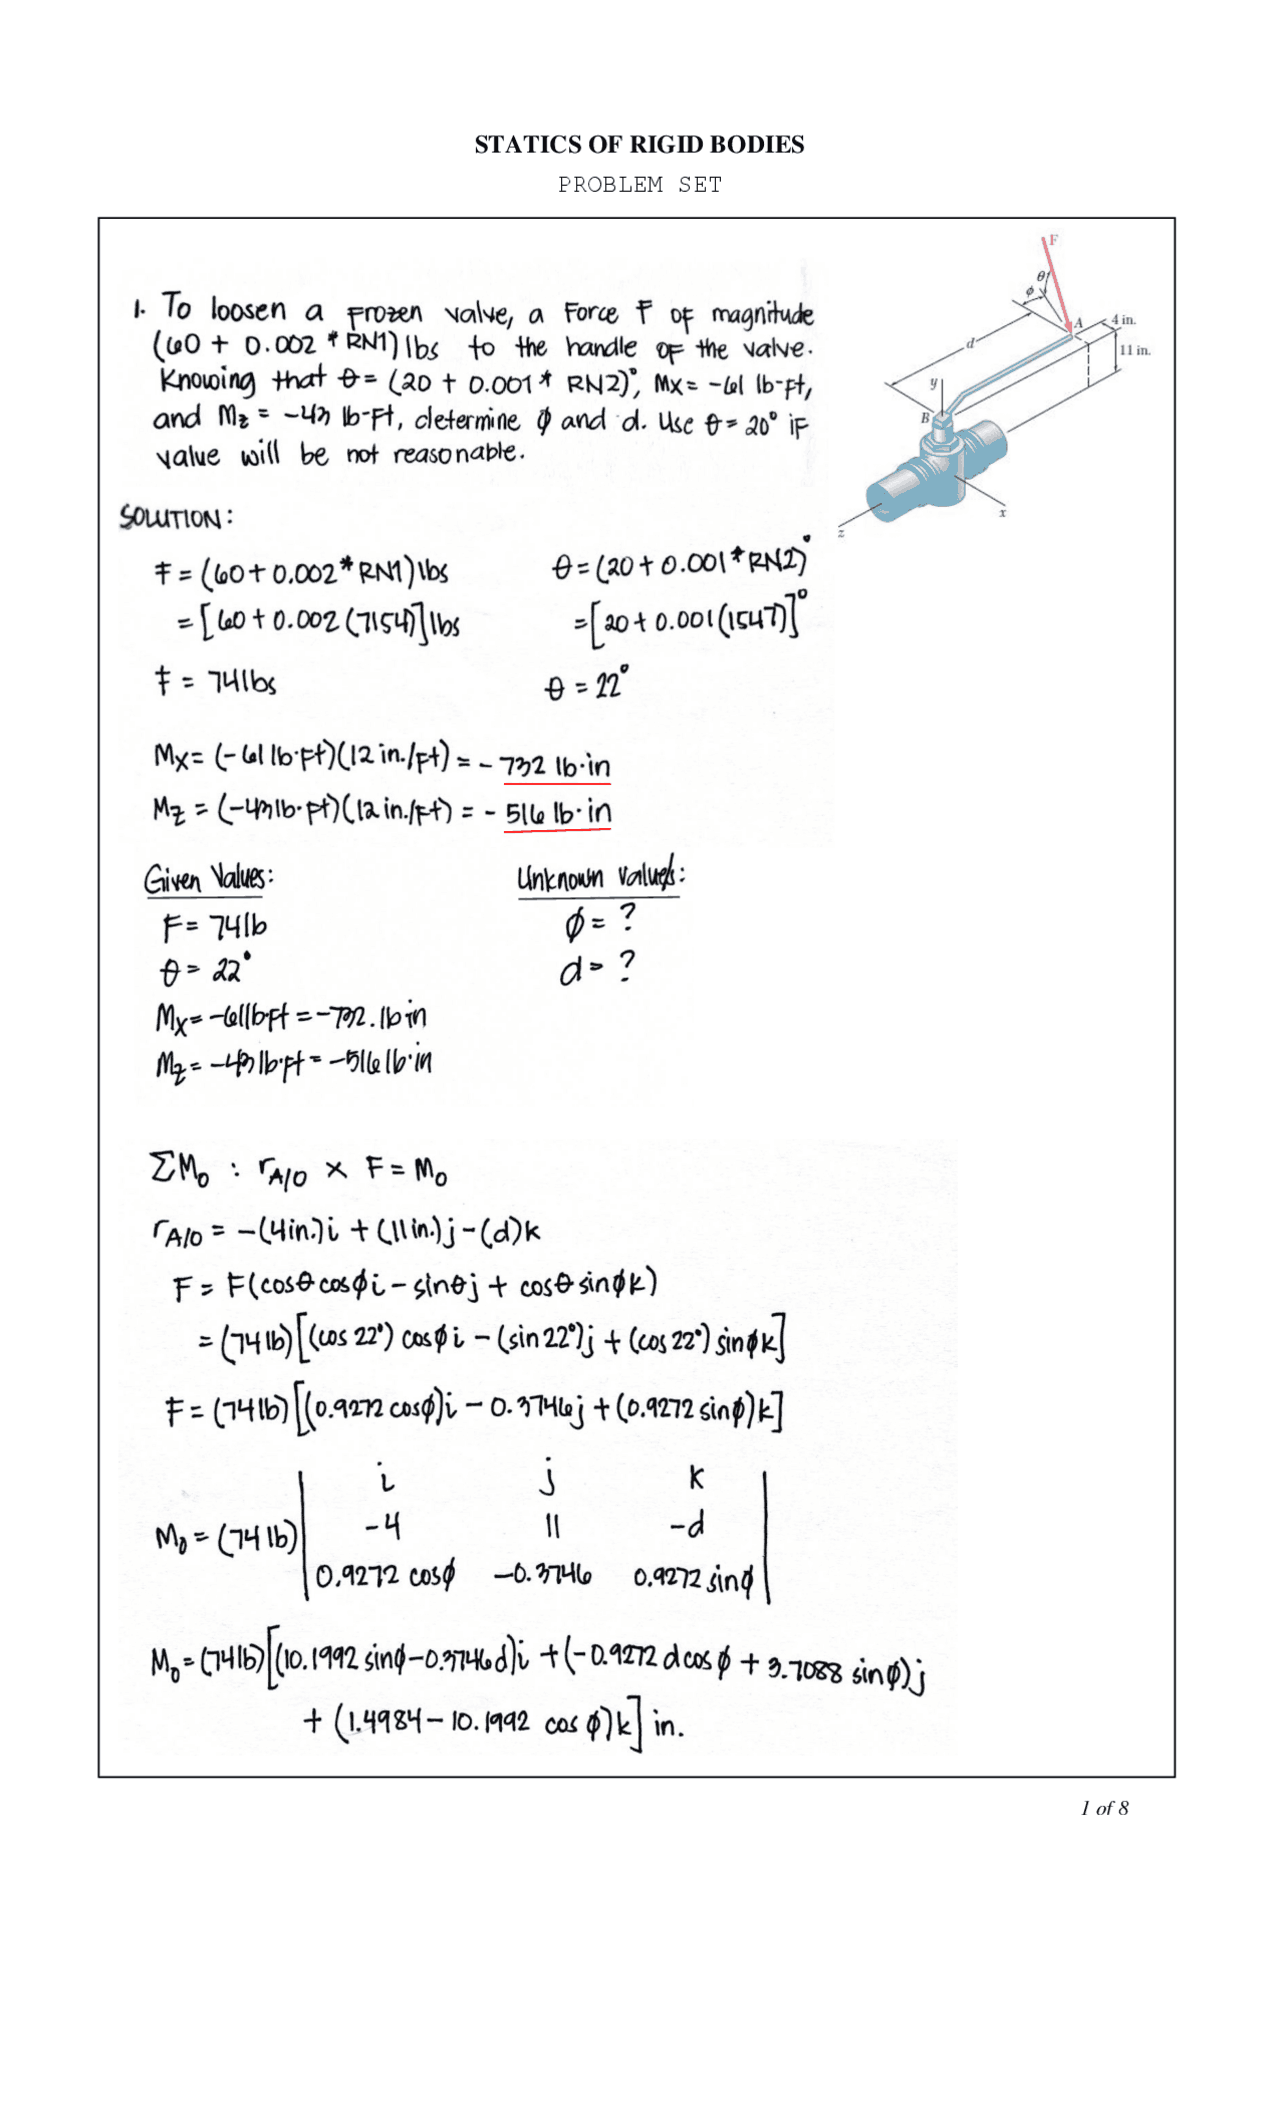 STATICS OF RIGID BODIES
PROBLEM SET
1. To loosen a frozen valve, a Force F of magnitude
(60 + 0.002 * RN1) lbs to the handle of the valve.
Knowing that θ = (20 + 0.001 * RN2)°, Mx = -61 lb-ft,
and Mz = -43 lb-ft, determine φ and d. Use θ = 20° if
value will be not reasonable.
F
θ
φ
A
4 in.
11 in.
d
y
B
x
z
SOLUTION:
F = (60 + 0.002 * RN1) lbs
θ = (20 + 0.001 * RN2)°
= [60 + 0.002 (7154)] lbs
= [20 + 0.001 (1547)]°
F = 74 lbs
θ = 22°
Mx = (-61 lb·ft)(12 in./ft) = - 732 lb·in
Mz = (-43 lb·ft)(12 in./ft) = - 516 lb·in
Given Values:
Unknown Values:
F = 74 lb
φ = ?
θ = 22°
d = ?
Mx = -61 lb·ft = -732. lb·in
Mz = -43 lb·ft = -516 lb·in
ΣMo : rA/O × F = Mo
rA/O = -(4 in.)i + (11 in.)j - (d)k
F = F(cosθ cosφ i - sinθ j + cosθ sinφ k)
= (74 lb)[(cos 22°) cosφ i - (sin 22°)j + (cos 22°) sinφ k]
F = (74 lb)[(0.9272 cosφ)i - 0.3746j + (0.9272 sinφ)k]
i j k
-4 11 -d
Mo = (74 lb)
0.9272 cosφ -0.3746 0.9272 sinφ
Mo = (74 lb)[(10.1992 sinφ - 0.3746d)i + (-0.9272 d cos φ + 3.7088 sin φ)j
+ (1.4984 - 10.1992 cos φ)k] in.
1 of 8